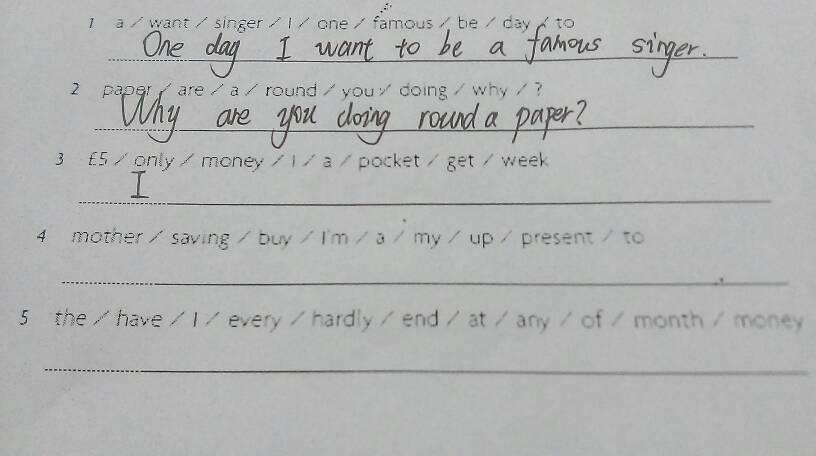 1 a / want / singer / I / one / famous / be / day / to
One day I want to be a famous singer.
2 paper / are / a / round / you / doing / why / ?
Why are you doing round a paper?
3 £5 / only / money / I / a / pocket / get / week
I
4 mother / saving / buy / I'm / a / my / up / present / to
5 the / have / I / every / hardly / end / at / any / of / month / money